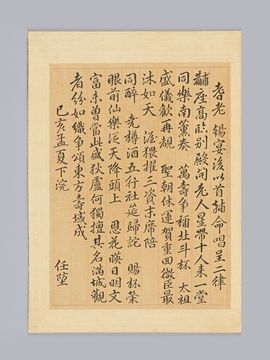 耆老 錫宴後以首
命唱呈二律
座高 別殿開老人星帶十人來一堂
同樂南薰奏 萬壽爭稱北斗杯 太祖
盛儀歡再覩 聖朝休運賀重回微臣最
沐如天 渥猥擢三資末席陪
同醉 堯樽酒五行社筵歸詫 賜杯榮
眼前仙樂從天降頭上 恩花暎日明文
富未曾當此盛狄盧何獨擅其名滿城觀
者份如織爭頌東方壽域成
己亥孟夏下浣
任堕